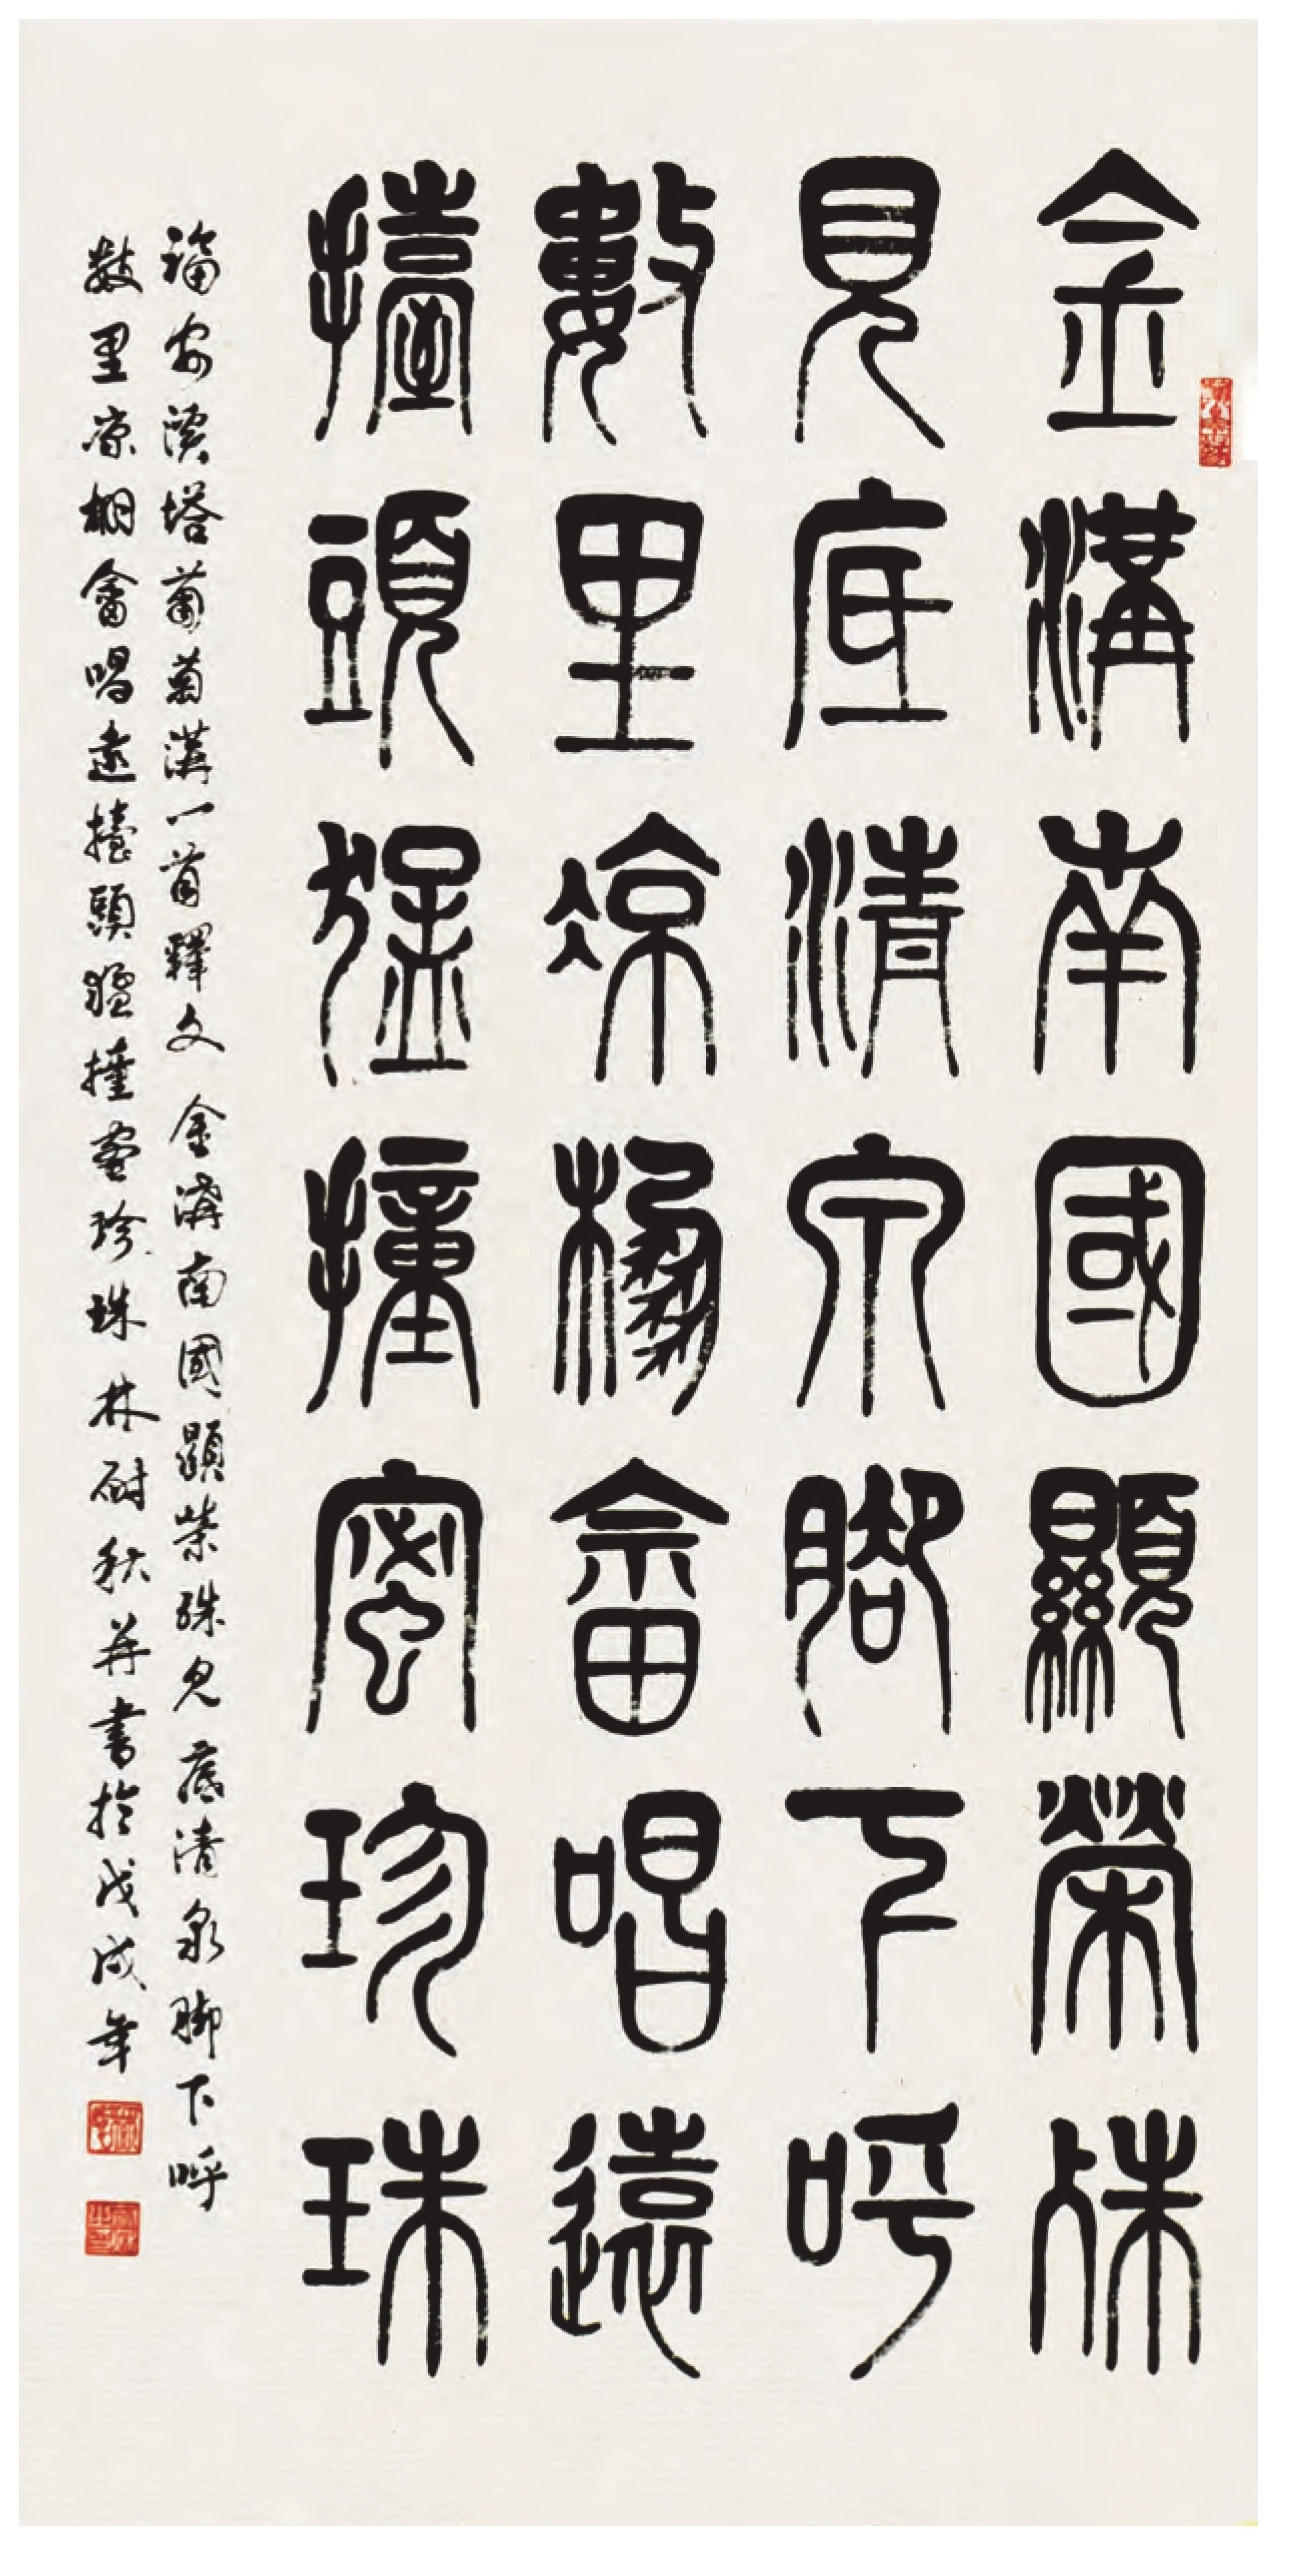 金溝南國顯榮殊
見底清泉腳下呼
數里涼棚畬唱遠
擡頭猛撞蜜珍珠
福安溪塔葡萄溝一首釋文 金溝南國顯榮殊見底清泉脚下呼
數里涼棚畬唱遠擡頭猛撞蜜珍珠 林尉秋并書於戊戌年